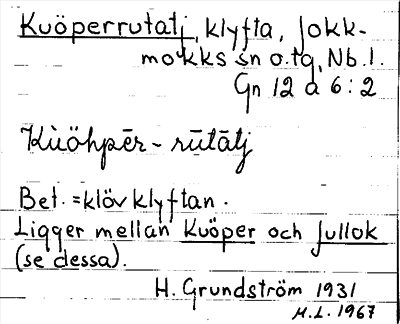 Kuöperrutatj, klyfta, Jokk-
mokks sn o. tg, Nb. l.
Gn 12 a 6:2
Kùöhpēr-rūtātj
Bet. = klöv klyftan.
Ligger mellan Kuöper och Jullok
(se dessa).
H. Grundström 1931
H.L. 1967